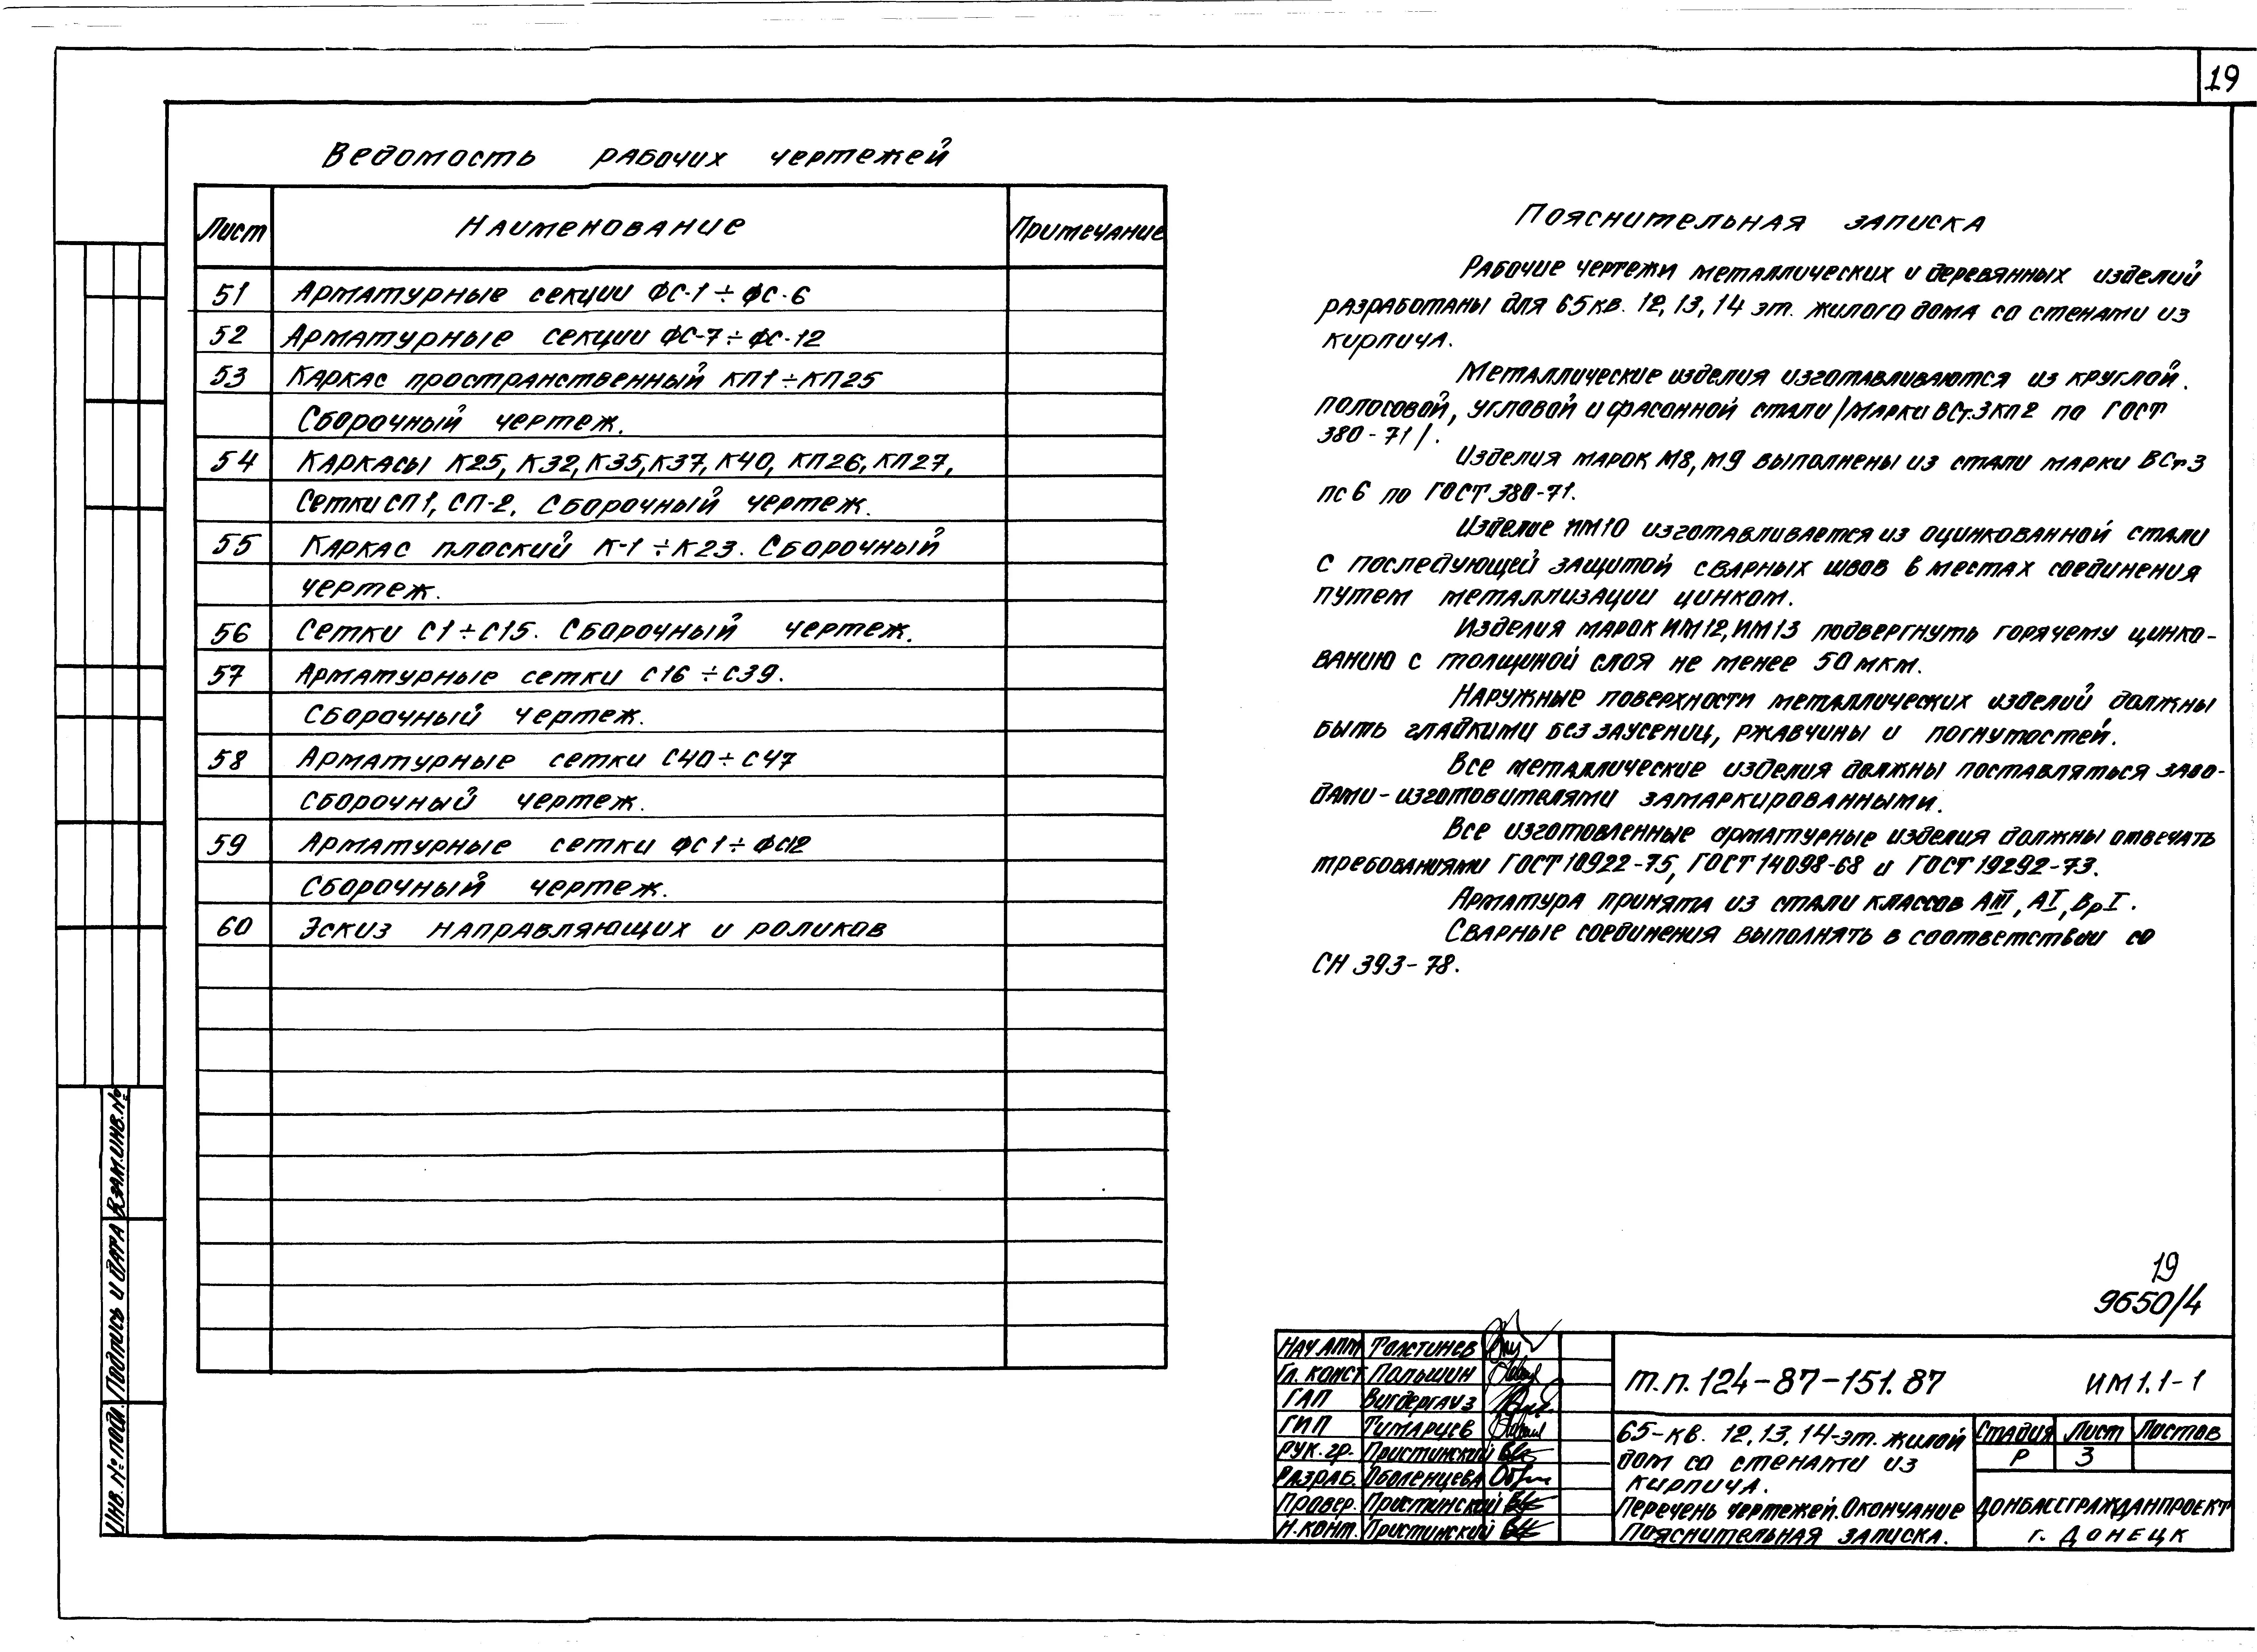 19
Ведомость рабочих чертежей
Лист Наименование Примечание
51 Арматурные секции ФС-1÷ФС-6
52 Арматурные секции ФС-7÷ФС-12
53 Каркас пространственный КП1÷КП25
Сборочный чертеж.
54 Каркасы К25, К32, К35, К37, К40, КП26, КП27,
Сетки СП1, СП-2. Сборочный чертеж.
55 Каркас плоский К-1÷К23. Сборочный
чертеж.
56 Сетки С1÷С15. Сборочный чертеж.
57 Арматурные сетки С16÷С39.
Сборочный чертеж.
58 Арматурные сетки С40÷С47
Сборочный чертеж.
59 Арматурные сетки ФС1÷ФС12
Сборочный чертеж.
60 Эскиз направляющих и роликов
Пояснительная записка
Рабочие чертежи металлических и деревянных изделий
разработаны для 65кв. 12, 13, 14 эт. жилого дома со стенами из
кирпича.
Металлические изделия изготавливаются из круглой.
полосовой, угловой и фасонной стали /марки ВСт.3кп2 по ГОСТ
380-71/.
Изделия марок М8, М9 выполнены из стали марки ВСт3
пс6 по ГОСТ 380-71.
Изделие ИМ10 изготавливается из оцинкованной стали
с последующей защитой сварных швов в местах соединения
путем металлизации цинком.
Изделия марок ИМ12, ИМ13 подвергнуть горячему цинко-
ванию с толщиной слоя не менее 50мкм.
Наружные поверхности металлических изделий должны
быть гладкими без заусениц, ржавчины и погнутостей.
Все металлические изделия должны поставляться заво-
дами-изготовителями замаркированными.
Все изготовленные арматурные изделия должны отвечать
требованиями ГОСТ 10922-75, ГОСТ 14098-68 и ГОСТ 19292-73.
Арматура принята из стали классов АIII, АI, ВрI.
Сварные соединения выполнять в соответствии со
СН 393-78.
19
9650/4
Нач АПМ Толстинев
Гл. конст Пальшин
ГАП Вигдергауз
ГИП Тимарцев
Рук. гр. Пристинский
Разраб. Оболенцева
Провер. Пристинский
Н. конт. Пристинский
т.п. 124-87-151.87 ИМ1.1-1
65-кв. 12, 13, 14-эт. жилой
дом со стенами из
кирпича.
Перечень чертежей. Окончание
Пояснительная записка.
Стадия Лист Листов
Р 3
ДОНБАССГРАЖДАНПРОЕКТ
г. Донецк
Взам. инв. №
Подпись и дата
Инв. № подл.